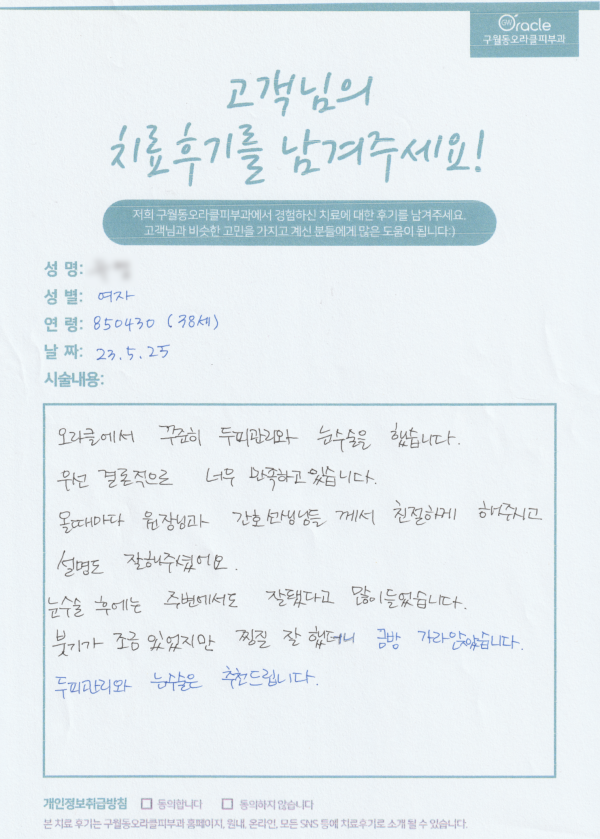 Oracle
구월동오라클피부과
고객님의
치료후기를 남겨주세요!
저희 구월동오라클피부과에서 경험하신 치료에 대한 후기를 남겨주세요.
고객님과 비슷한 고민을 가지고 계신 분들에게 많은 도움이 됩니다:)
성 명:
성 별: 여자
연 령: 850430 (38세)
날 짜: 23.5.25
시술내용:
오라클에서 꾸준히 두피관리와 눈수술을 했습니다.
우선 결론적으로 너무 만족하고 있습니다.
올때마다 원장님과 간호선생님들 께서 친절하게 해주시고
설명도 잘해주셨어요.
눈수술 후에는 주변에서도 잘됐다고 많이들었습니다.
붓기가 조금 있었지만 찜질 잘 했더니 금방 가라앉았습니다.
두피관리와 눈수술은 추천드립니다.
개인정보취급방침 □ 동의합니다 □ 동의하지 않습니다
본 치료 후기는 구월동오라클피부과 홈페이지, 원내, 온라인, 모든 SNS 등에 치료후기로 소개 될 수 있습니다.